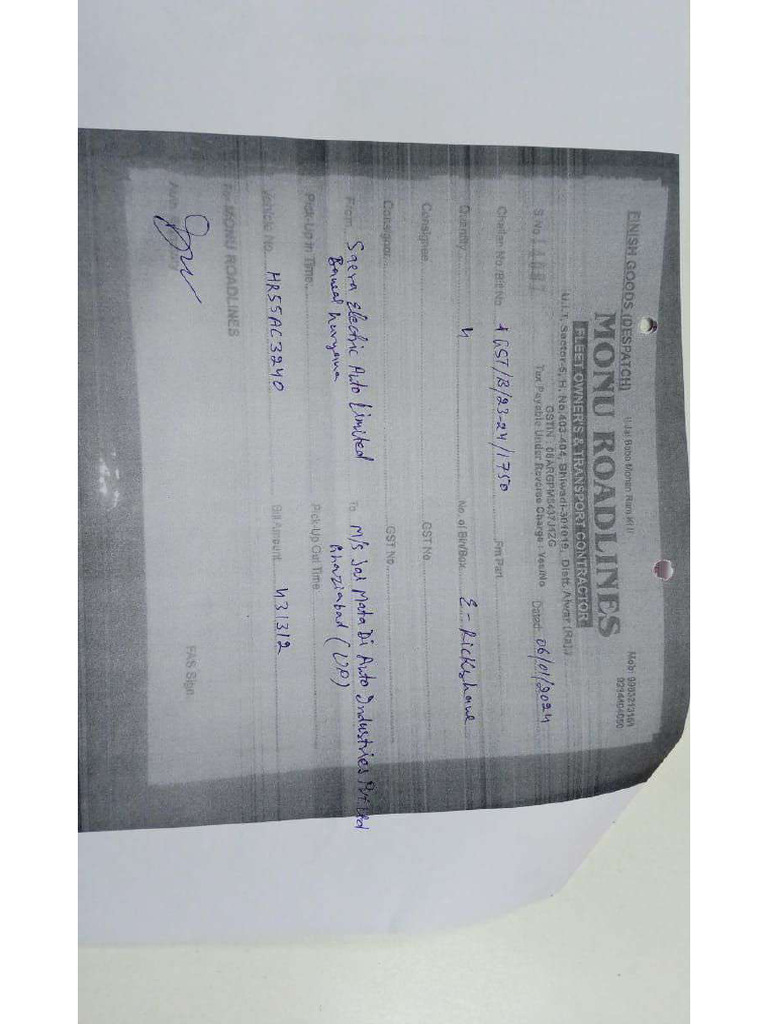 FINISH GOODS (DESPATCH)
MONU ROADLINES
FLEET OWNER'S & TRANSPORT CONTRACTOR
U.I.T. Sector-5, H. No. 403-404, Bhiwadi-301019, Distt. Alwar (Raj.)
Tax Payable Under Reverse Charge : Yes/No
S.No. Dated: 06/01/2024
Challan No./Bill No. GST/B/23-24/1750 Fm Part
Quantity 4 No. of Bin/Box E-Rickshaw
Consignee GST No.
Consignor GST No.
From Saera Electric Auto Limited To M/s Jai Mata Di Auto Industries Pvt Ltd
Bawal haryana Ghaziabad (UP)
Pick-Up in Time Pick-Up Out Time
Vehicle No. HR55AC3240 Bill Amount 431312
For MONU ROADLINES
FAS Sign.